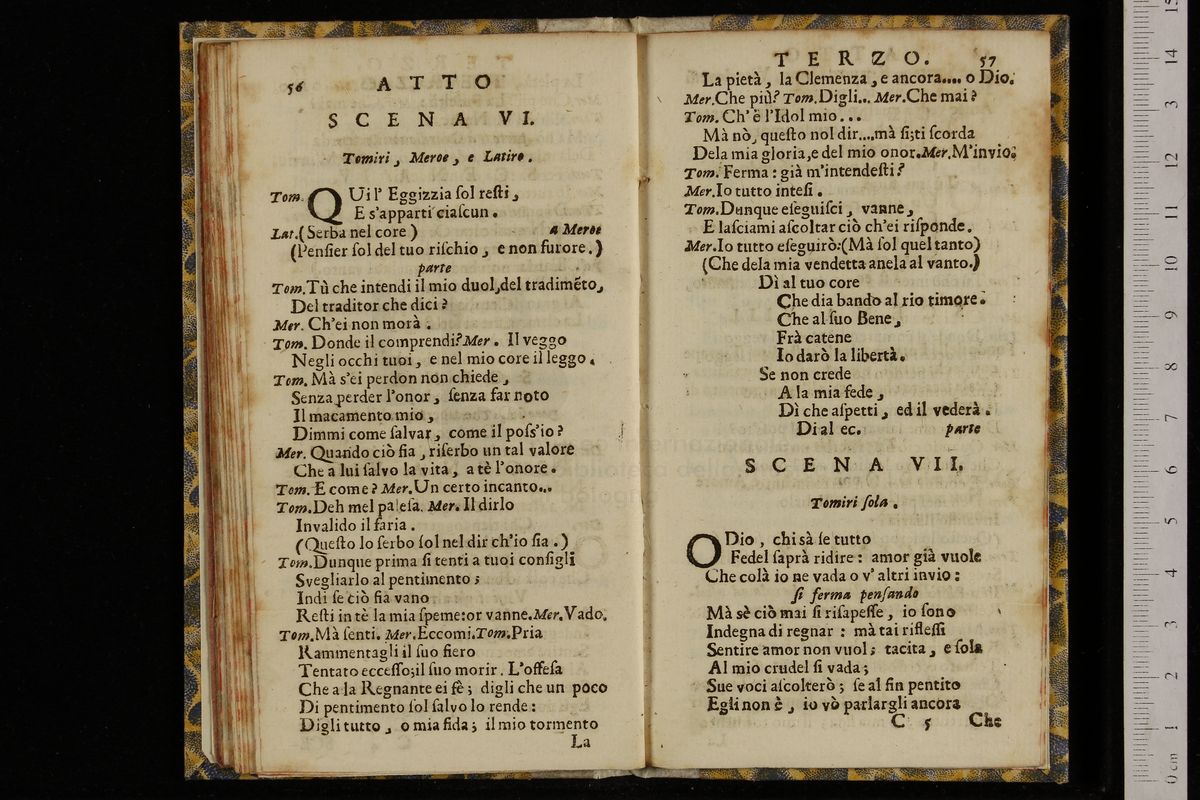 56 ATTO
SCENA VI.
Tomiri, Meroe, e Latiro.
Tom. QUi l' Eggizzia ſol reſti,
E s'apparti ciaſcun.
Lat.(Serba nel core) a Meroe
(Penſier ſol del tuo riſchio, e non furore.)
parte
Tom.Tù che intendi il mio duol,del tradimẽto,
Del traditor che dici?
Mer. Ch'ei non morà.
Tom. Donde il comprendi?Mer. Il veggo
Negli occhi tuoi, e nel mio core il leggo.
Tom. Mà s'ei perdon non chiede,
Senza perder l'onor, ſenza far noto
Il macamento mio,
Dimmi come ſalvar, come il poſs'io?
Mer. Quando ciò ſia, riſerbo un tal valore
Che a lui ſalvo la vita, a tè l'onore.
Tom. E come? Mer.Un certo incanto...
Tom.Deh mel paleſa. Mer. Il dirlo
Invalido il faria.
(Queſto lo ſerbo ſol nel dir ch'io ſia.)
Tom.Dunque prima ſi tenti a tuoi conſigli
Svegliarlo al pentimento;
Indi ſe ciò ſia vano
Reſti in tè la mia ſpeme:or vanne.Mer.Vado.
Tom.Mà ſenti. Mer.Eccomi.Tom.Pria
Rammentagli il ſuo fiero
Tentato ecceſſo;il ſuo morir. L'offeſa
Che a la Regnante ei fè; digli che un poco
Di pentimento ſol ſalvo lo rende:
Digli tutto, o mia fida; il mio tormento
La
TERZO. 57
La pietà, la Clemenza, e ancora.... o Dio.
Mer.Che più? Tom.Digli... Mer.Che mai?
Tom. Ch' è l'Idol mio...
Mà nò, queſto nol dir....mà ſi;ti ſcorda
Dela mia gloria,e del mio onor.Mer.M'invio.
Tom. Ferma: già m'intendeſti?
Mer.Io tutto inteſi.
Tom.Dunque eſeguiſci, vanne,
E laſciami aſcoltar ciò ch'ei riſponde.
Mer.Io tutto eſeguirò:(Mà ſol quel tanto)
(Che dela mia vendetta anela al vanto.)
Dì al tuo core
Che dia bando al rio timore.
Che al ſuo Bene,
Frà catene
Io darò la libertà.
Se non crede
A la mia fede,
Dì che aſpetti, ed il vederà.
Di al ec. parte
SCENA VII.
Tomiri ſola.
O Dio, chi sà ſe tutto
Fedel ſaprà ridire: amor già vuole
Che colà io ne vada o v' altri invio:
ſi ferma penſando
Mà sè ciò mai ſi riſapeſſe, io ſono
Indegna di regnar: mà tai rifleſſi
Sentire amor non vuol; tacita, e ſola
Al mio crudel ſi vada;
Sue voci aſcolterò; ſe al fin pentito
Egli non è, io vò parlargli ancora
C 5 Che
0 cm 1 2 3 4 5 6 7 8 9 10 11 12 3 14 15